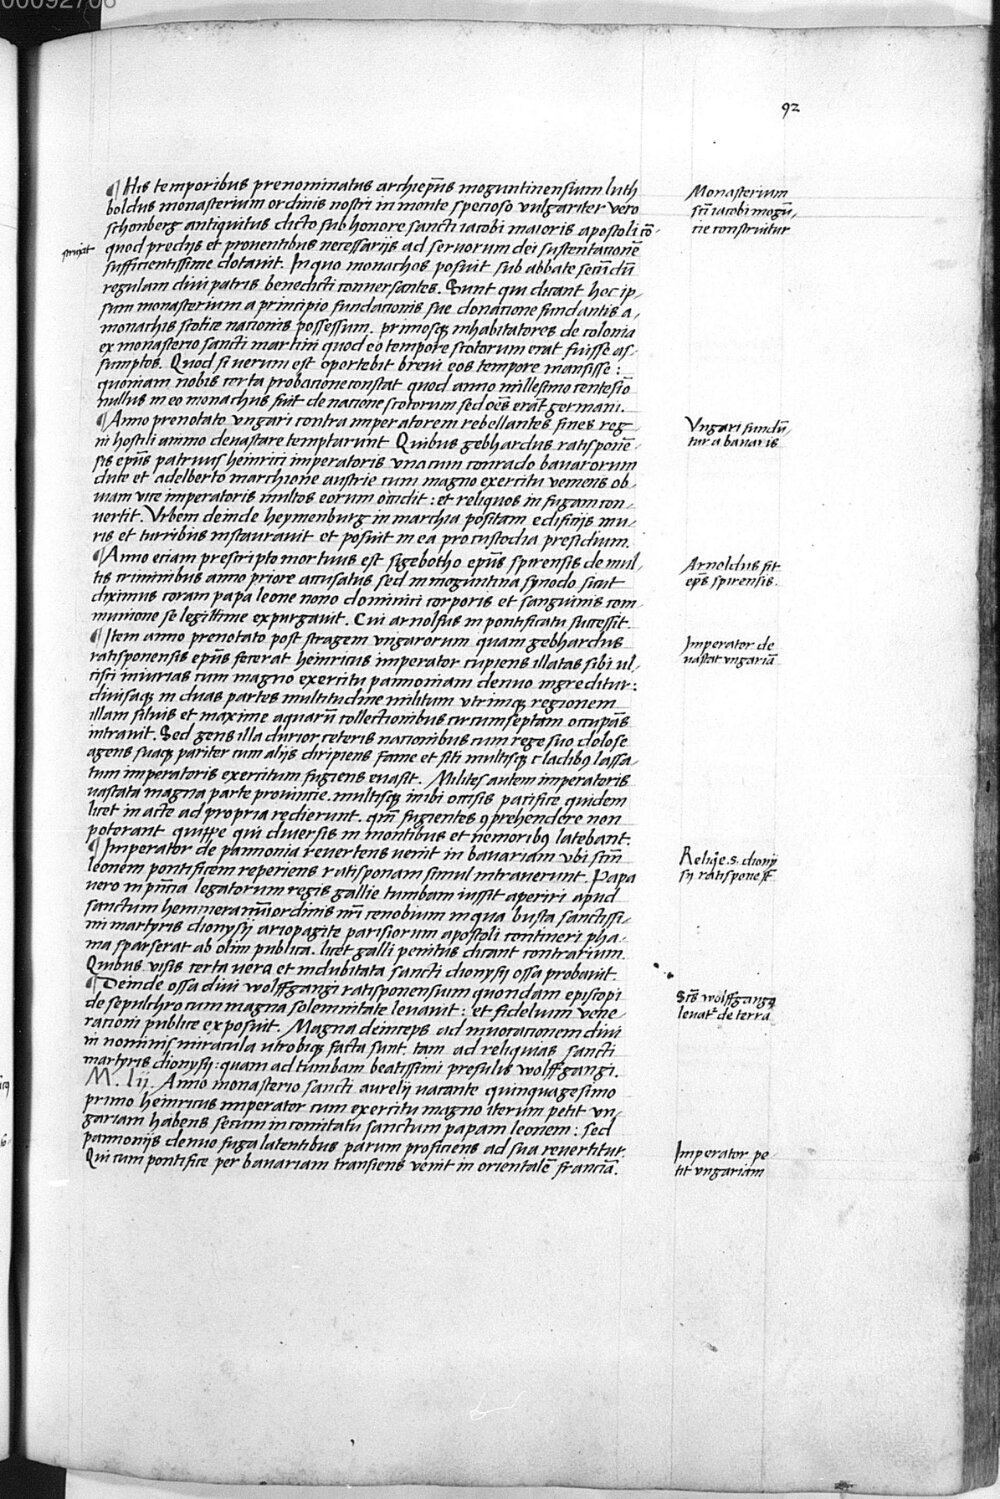 00092706
92
¶ His temporibus prenominatus archiep̄us moguntinensium luth
boldus monasterium ordinis nostri in monte specioso vulgariter vero
schonberg antiquitus dicto sub honore sancti iacobi maioris apostoli cō-
struxit
quod predijs et prouentibus necessarijs ad seruorum dei sustentacionē
sufficientissime dotauit. In quo monachos posuit sub abbate secūdū
regulam diui patris benedicti conuersantes. Sunt qui dicant hoc ip-
sum monasterium a principio fundacionis sue donacione fundantis a
monachis scotice nacionis possessum. primosq; inhabitatores de colonia
ex monasterio sancti martini quod eo tempore scotorum erat fuisse as-
sumptos. Quod si verum est oportebit breui eos tempore mansisse :
quoniam nobis certa probacione constat quod anno millesimo centesīo
nullus in eo monachus fuit de nacione scotorum sed oēs erāt germani.
¶ Anno prenotato vngari contra imperatorem rebellantes fines reg-
ni hostili animo deuastare temptarunt Quibus gebhardus ratisponē-
sis ep̄us patruus heinrici imperatoris vna cum conrado bauarorum
duce et adelberto marchione austrie cum magno exercitu veniens ob-
uiam vice imperatoris multos eorum occidit : et reliquos in fugam con-
uertit. Vrbem deinde heymenburg in marchia positam edificijs mu-
ris et turribus instaurauit et posuit in ea pro custodia presidium.
¶ Anno eciam prescripto mortuus est sigebotho ep̄us spirensis de mul
tis criminibus anno priore accusatus sed in moguntina synodo sicut
diximus coram papa leone nono dominici corporis et sanguinis com
munione se legittime expurgauit. Cui arnolfus in pontificatu successit.
¶ Item anno prenotato post stragem vngarorum quam gebhardus
ratisponensis ep̄us fecerat heinricus imperator cupiens illatas sibi ul-
cisci iniurias cum magno exercitu pannoniam denuo ingreditur :
diuisaq; in duas partes multitudine militum vtrimq; regionem
illam siluis et maxime aquarū collectionibus circumseptam occupās
intrauit. Sed gens illa durior ceteris nacionibus cum rege suo dolose
agens suaq; pariter cum alijs diripiens fame et siti multisq; cladib9 lassa
tum imperatoris exercitum fugiens euasit. Milites autem imperatoris
vastata magna parte prouincie. multisq; inibi occisis pacifice quidem
licet in acte ad propria redierunt. qm̄ fugientes 9prehendere non
poterant quippe qui diuersis in montibus et nemorib9 latebant.
¶ Imperator de pannonia reuertens venit in bauariam vbi scm̄
leonem pontificem reperiens ratisponam simul intrauerunt. Papa
vero in pn̄cia legatorum regis gallie tumbam iussit aperiri apud
sanctum hemmeranū ordinis nr̄i cenobium in qua busta sanctissi-
mi martyris dionysij ariopagite parisiorum apostoli contineri pha-
ma sparserat ab olim publica. licet galli penitus dicant contrarium.
Quibus visis certa vera et indubitata sancti dionysij ossa probauit.
¶ Deinde ossa diui wolffgangi ratisponensium quondam episcopi
de sepulchro cum magna solemnitate leuauit : et fidelium vene
racioni publice exposuit. Magna deinceps ad inuocationem diui
ni nominis miracula vtrobiq; facta sunt. tam ad reliquias sancti
martyris dionysij : quam ad tumbam beatissimi presulis wolffgangi.
M. lij. Anno monasterio sancti aurelij vacante quinquagesimo
primo heinricus imperator cum exercitu magno iterum petit vn-
gariam habens secum in comitatu sanctum papam leonem : sed
pannonijs denuo fuga latentibus parum proficiens ad sua reuertitur.
Qui cum pontifice per bauariam transiens venit in orientalē franciā.
Monasterium
scī iacobi mogū-
cie construitur
Vngari fundū-
tur a bauaris
Arnoldus fit
ep̄s spirensis.
Imperator de
uastat vngariā
Reliq̄e. s. dionij
sij ratisponēs̄
Sc̄s wolffgang9
leuat᷑ de terra
Imperator pe-
tit vngariam